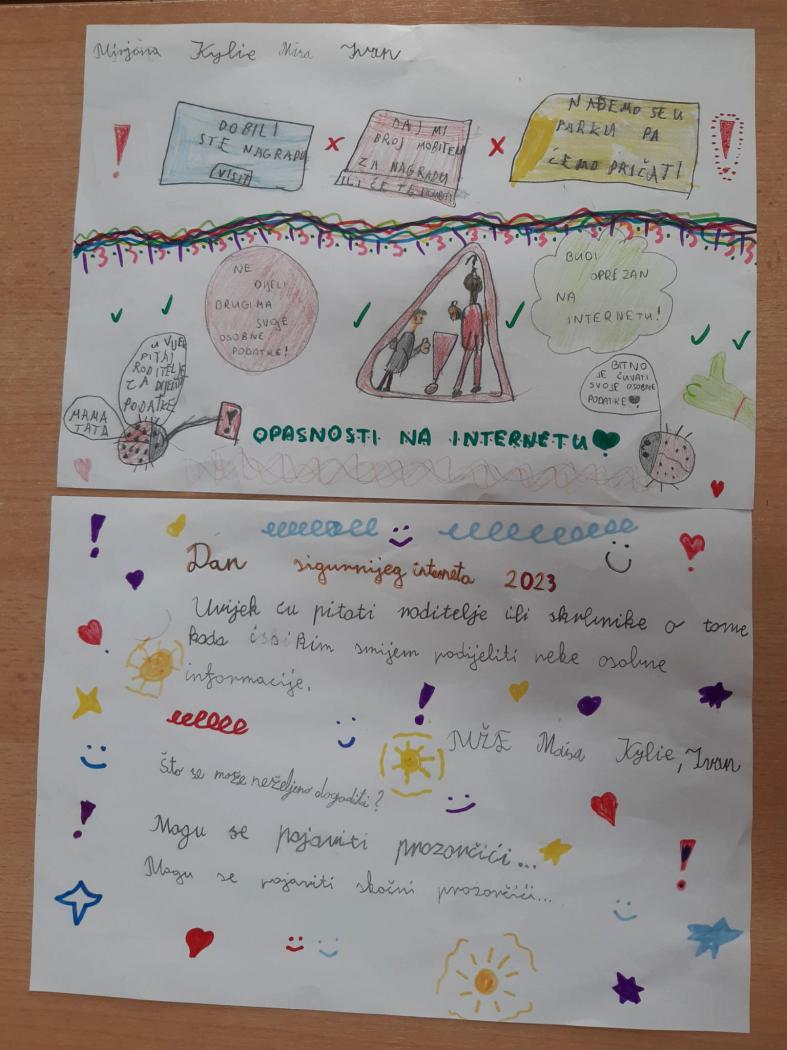 Mirjana Kylie Mása Ivan
DOBILI
STE NAGRADU
VISIT
DAJ MI
BROJ MOBITELA
ZA NAGRADU
ILI ĆE TE
NAĐEMO SE U
PARKU PA
ĆEMO PRIČATI
NE
DIJELI
DRUGIMA
SVOJE
OSOBNE
PODATKE!
BUDI
OPREZAN
NA
INTERNETU!
UVIJEK
PITAJ
RODITELJE
ZA
PODATKE
MAMA
TATA
BITNO
JE ČUVATI
SVOJE OSOBNE
PODATKE
OPASNOSTI NA INTERNETU
Dan sigurnijeg interneta 2023
Uvijek ću pitati roditelje ili skrbnike o tome
kada i s kim smijem podijeliti neke osobne
informacije.
Mása Kylie, Ivan
Što se može neželjeno dogoditi?
Mogu se pojaviti prozorčići...
Mogu se pojaviti skočni prozorčići...